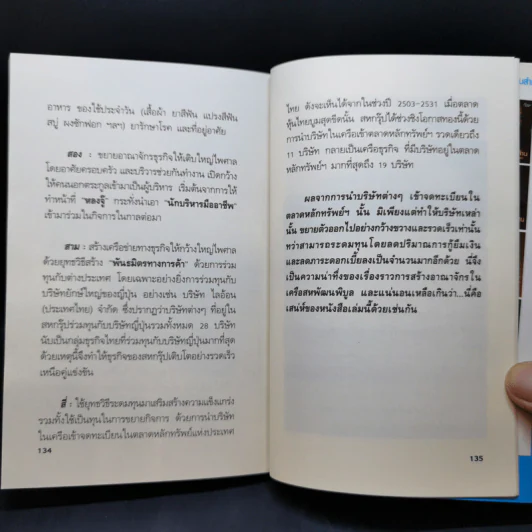 อาหาร ของใช้ประจำวัน (เสื้อผ้า ยาสีฟัน แปรงสีฟัน
สบู่ ผงซักฟอก ฯลฯ) ยารักษาโรค และที่อยู่อาศัย
สอง : ขยายอาณาจักรธุรกิจให้เติบใหญ่ไพศาล
โดยอาศัยครอบครัว และบริวารช่วยกันทำงาน เปิดกว้าง
ให้คนนอกตระกูลเข้ามาเป็นผู้บริหาร เริ่มต้นจากการให้
ทำหน้าที่ "หลงจู๊" กระทั่งนำเอา "นักบริหารมืออาชีพ"
เข้ามาร่วมในกิจการในกาลต่อมา
สาม : สร้างเครือข่ายทางธุรกิจให้กว้างใหญ่ไพศาล
ด้วยยุทธวิธีสร้าง "พันธมิตรทางการค้า" ด้วยการร่วม
ทุนกับต่างประเทศ โดยเฉพาะอย่างยิ่งการร่วมทุนกับ
บริษัทยักษ์ใหญ่ของญี่ปุ่น อย่างเช่น บริษัท ไลอ้อน
(ประเทศไทย) จำกัด ซึ่งปรากฏว่าบริษัทต่างๆ ที่อยู่ใน
สหกรุ๊ปร่วมทุนกับบริษัทญี่ปุ่นรวมทั้งหมด 28 บริษัท
นับเป็นกลุ่มธุรกิจไทยที่ร่วมทุนกับบริษัทญี่ปุ่นมากที่สุด
ด้วยเหตุนี้จึงทำให้ธุรกิจของสหกรุ๊ปเติบโตอย่างรวดเร็ว
เหนือคู่แข่งขัน
สี่ : ใช้ยุทธวิธีระดมทุนมาเสริมสร้างความแข็งแกร่ง
รวมทั้งใช้เป็นทุนในการขยายกิจการ ด้วยการนำบริษัท
ในเครือเข้าจดทะเบียนในตลาดหลักทรัพย์แห่งประเทศ
134
ไทย ดังจะเห็นได้จากในช่วงปี 2503-2531 เมื่อตลาด
หุ้นไทยบูมสุดขีดนั้น สหกรุ๊ปได้ช่วงชิงโอกาสทองนี้ด้วย
การนำบริษัทในเครือเข้าตลาดหลักทรัพย์ฯ รวดเดียวถึง
11 บริษัท กลายเป็นเครือธุรกิจ ที่มีบริษัทอยู่ในตลาด
หลักทรัพย์ฯ มากที่สุดถึง 19 บริษัท
ผลจากการนำบริษัทต่างๆ เข้าจดทะเบียนใน
ตลาดหลักทรัพย์ฯ นั้น มิเพียงแต่ทำให้บริษัทเหล่า
นั้น ขยายตัวออกไปอย่างกว้างขวางและรวดเร็วเท่านั้น
ทว่าสามารถระดมทุน โดยลดปริมาณการกู้ยืมเงิน
และลดภาระดอกเบี้ยลงเป็นจำนวนมากอีกด้วย นี่จึง
เป็นความน่าทึ่งของเรื่องราวการสร้างอาณาจักรใน
เครือสหพัฒนพิบูล และแน่นอนเหลือเกินว่า...นี่คือ
เสน่ห์ของหนังสือเล่มนี้ด้วยเช่นกัน
135